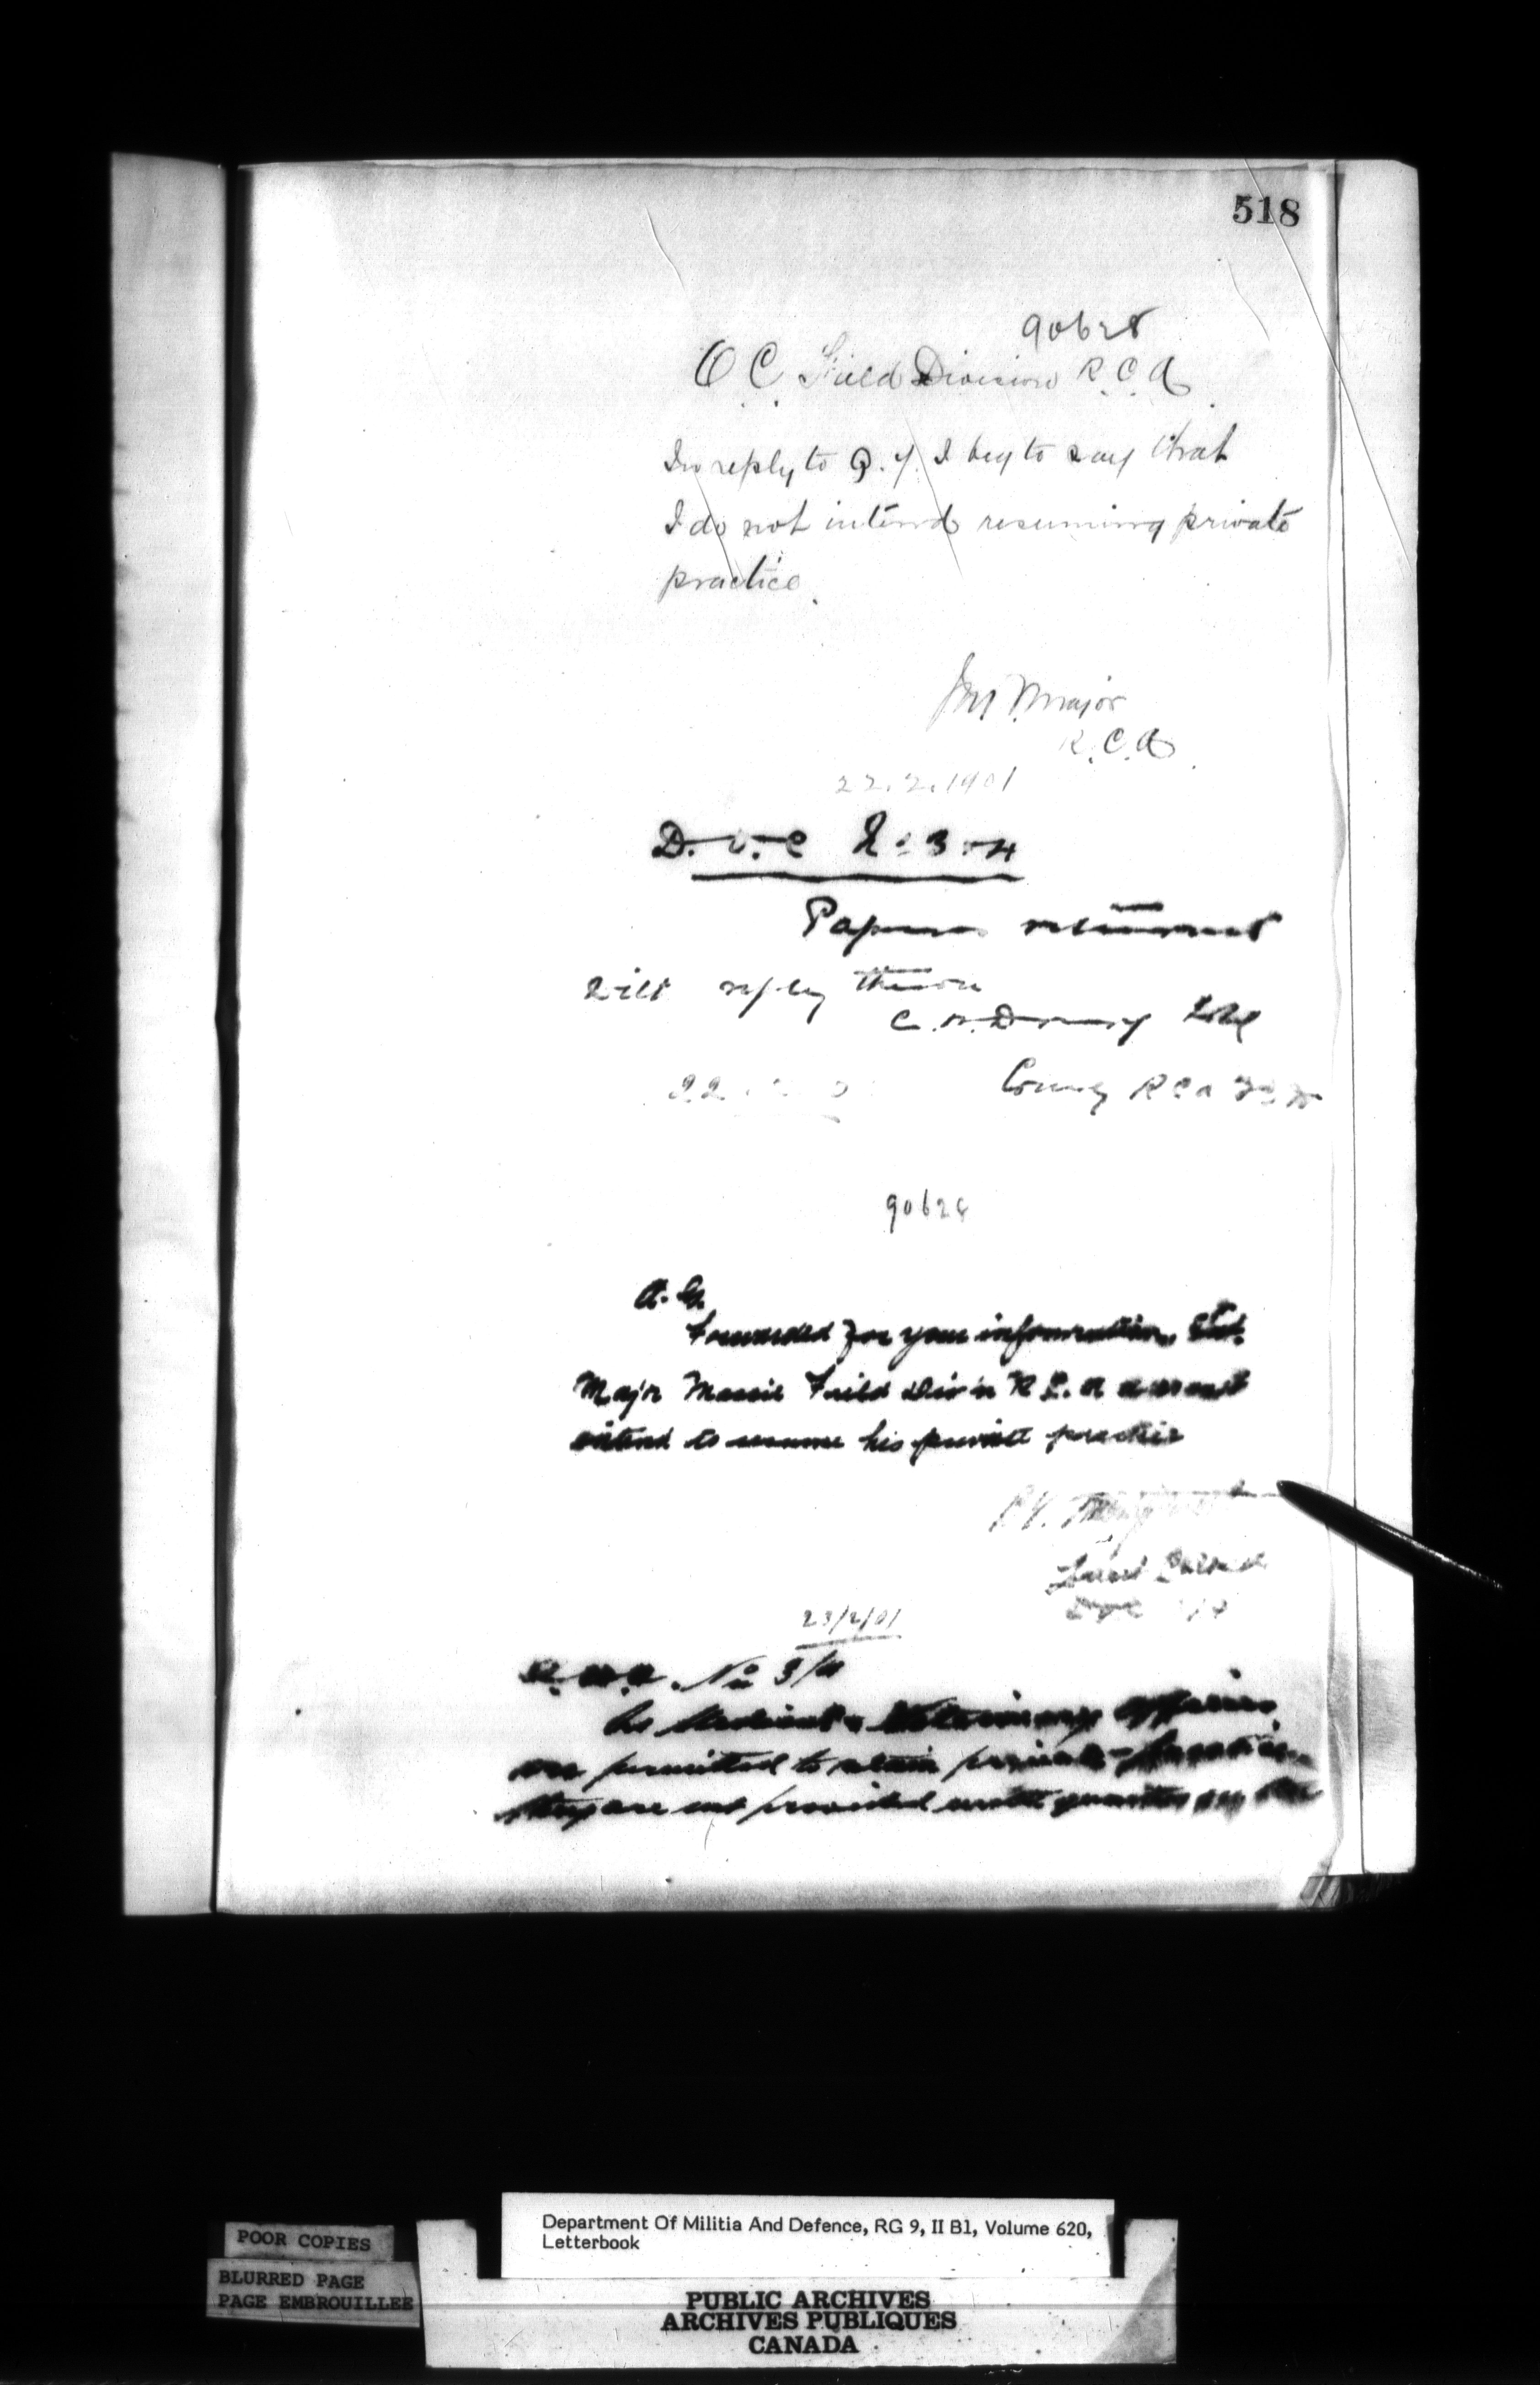 518
90628
O C Field Division R.C.A.
In reply to Q. I beg to say that
I do not intend resuming private
practice.
Major
R.C.A.
22.2.1901
D.O.C No 3 & 4
Papers returned
with reply thereon
C.W. Drury
Comdg R C A
22
90628
A.G.
Forwarded for your information,
Major Massie Field Divn R C. A does not
intend to resume his private practice
23/2/01
D.O.C. No 3/4
As Medical & Veterinary Officers
are permitted to retain private practice
they are not provided with quarters
POOR COPIES
BLURRED PAGE
PAGE EMBROUILLEE
Department Of Militia And Defence, RG 9, II B1, Volume 620,
Letterbook
PUBLIC ARCHIVES
ARCHIVES PUBLIQUES
CANADA